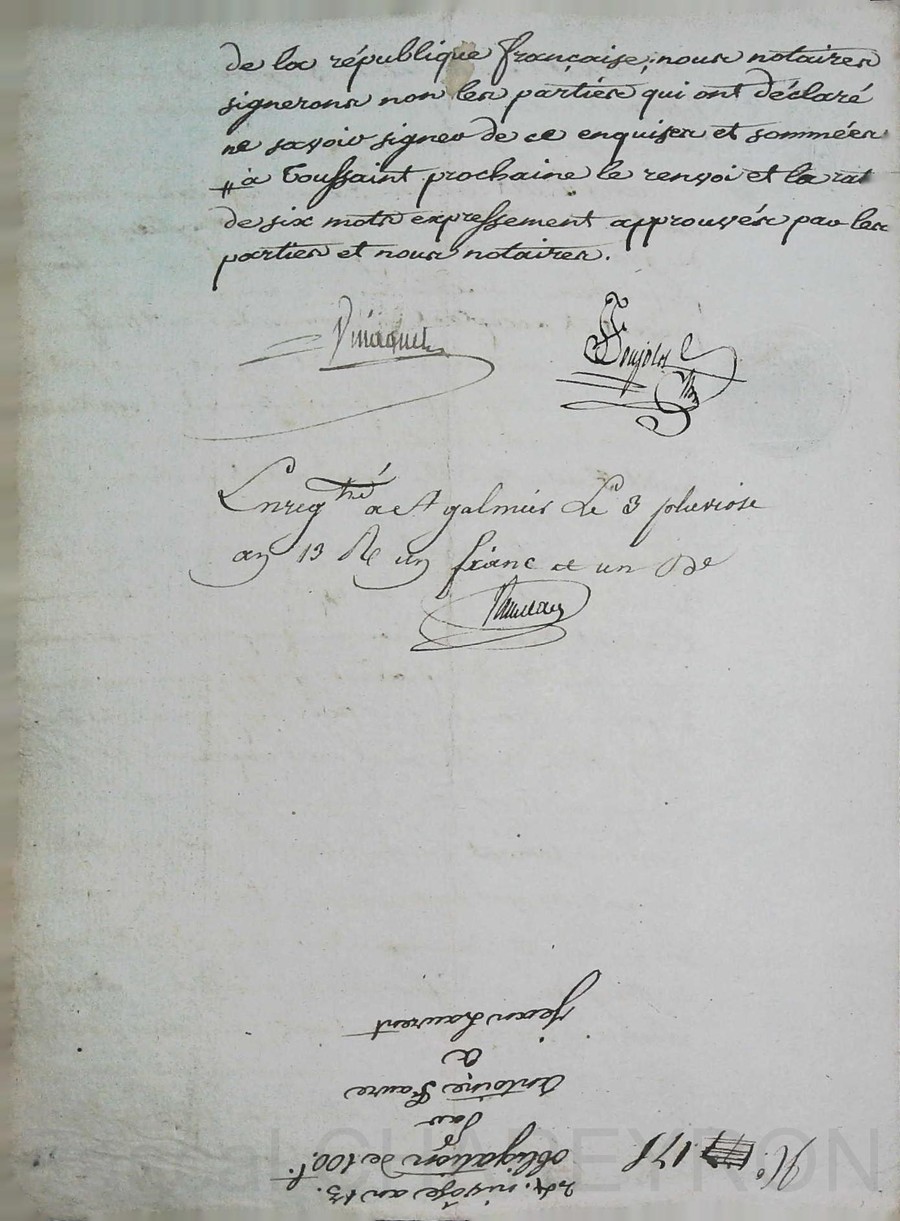 de la république française; nous notaires
signerons non les parties qui ont déclaré
ne savoir signer de ce enquises et sommées
# à Toussaint prochaine le renvoi et la rat
de six mots expressement approuvés par les
parties et nous notaires.
Poujols
Enregtré à St galmier Le 3 pluviose
an 13 Re un franc et un De
24. nivôse an 13.
obligation de 100.f
par
antoine faure
à
jean Laurent
N.° 178
LCHAREYRON